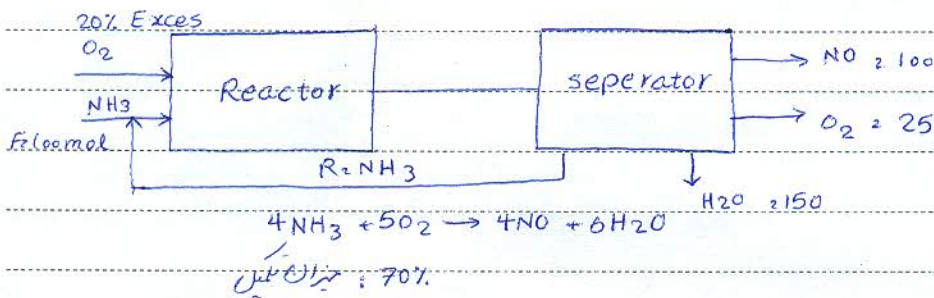 20% Exces
O2
NH3
F=100mol
Reactor
seperator
NO = 100
O2 = 25
H2O = 150
R=NH3
4NH3 + 5O2 → 4NO + 6H2O
میزان تبدیل : 70%